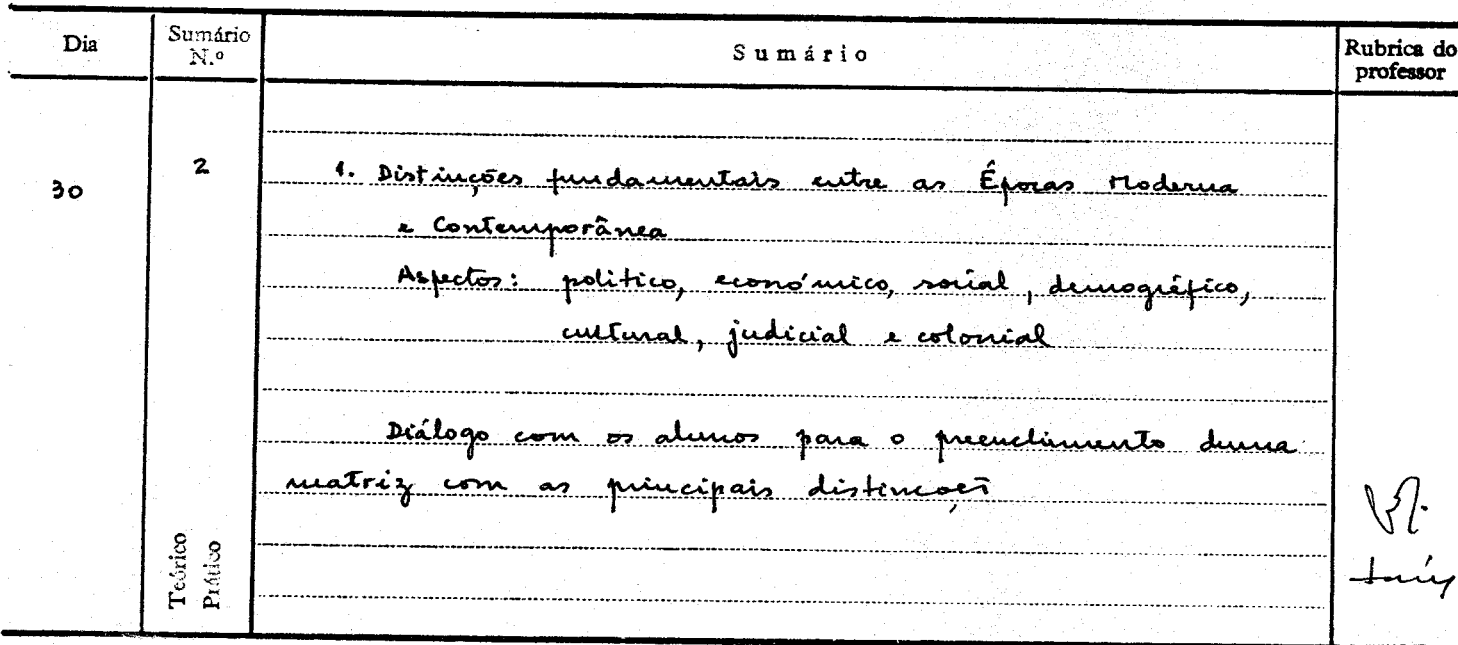 Dia Sumário N.º Sumário Rubrica do professor
30 2 1. Distinções fundamentais entre as Épocas Moderna
e Contemporânea
Aspectos: político, económico, social, demográfico,
cultural, judicial e colonial
Diálogo com os alunos para o preenchimento duma
matriz com as principais distinções
Teórico
Prático